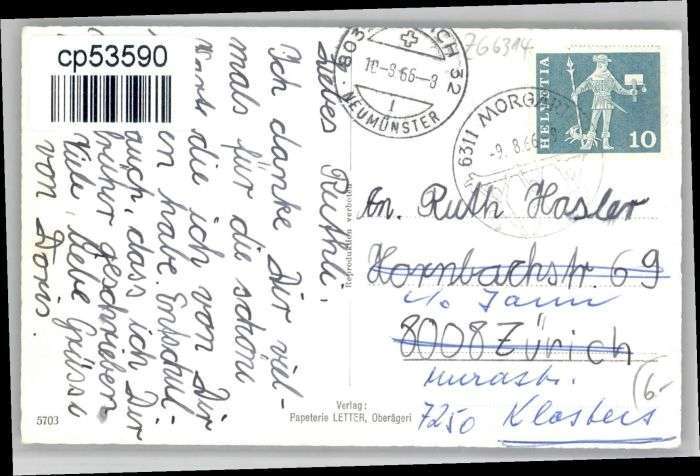 cp53590
Liebes Ruthli.
Ich danke Dir viel-
mals für die schöne
Karte die ich von Dir
habe. Entschul-
auch, dass ich Dir
früher geschrieben
Viele liebe Grüsse
von Doris.
5703
Reproduktion verboten
Verlag:
Papeterie LETTER, Oberägeri
32
10-8.66-8
1
NEUMÜNSTER
766314
6311 MORG
-9.8.66
HELVETIA
10
An. Ruth Hasler
Hornbachstr. 69
c/o Jann
8008 Zürich
7250 Klosters
6.-